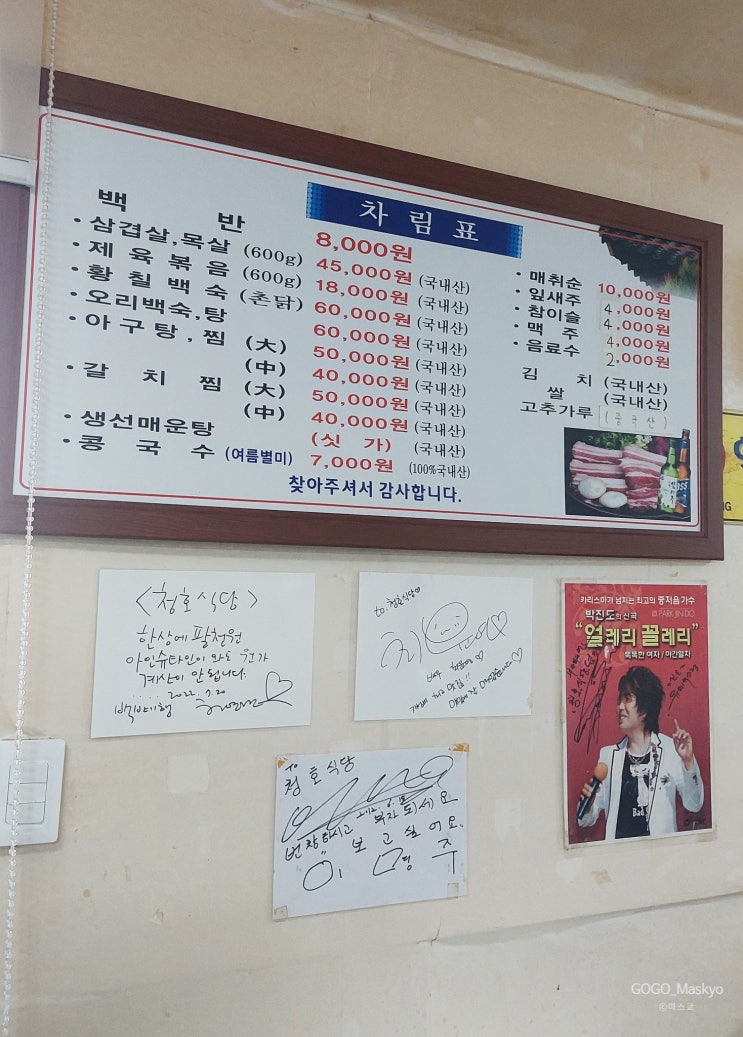 차림표
백 반 8,000원
·삼겹살,목살 (600g) 45,000원 (국내산)
·제육볶음 (600g) 18,000원 (국내산)
·황칠백숙 (촌닭) 60,000원 (국내산)
·오리백숙,탕 60,000원 (국내산)
·아구탕,찜 (大) 50,000원 (국내산)
(中) 40,000원 (국내산)
·갈치찜 (大) 50,000원 (국내산)
(中) 40,000원 (국내산)
·생선매운탕 (싯가) (국내산)
·콩국수 (여름별미) 7,000원 (100%국내산)
찾아주셔서 감사합니다.
·매취순 10,000원
·잎새주 4,000원
·참이슬 4,000원
·맥주 4,000원
·음료수 2,000원
김치 (국내산)
쌀 (국내산)
고추가루 (중국산)
<청호식당>
한상에 팔천원
아인슈타인이 와도 원가
계산이 안됩니다.
.... 2022. 7.20
백반기행
to. 청호식당
To
청호식당
번창하시고 부자되세요
보고싶어요.
카리스마가 넘치는 최고의 중저음가수
박진도의 신곡 PARK JIN DO
"얼레리 꼴레리"
똑똑한 여자 / 야간열차
Bad
GOGO_Maskyo
©마스쿄